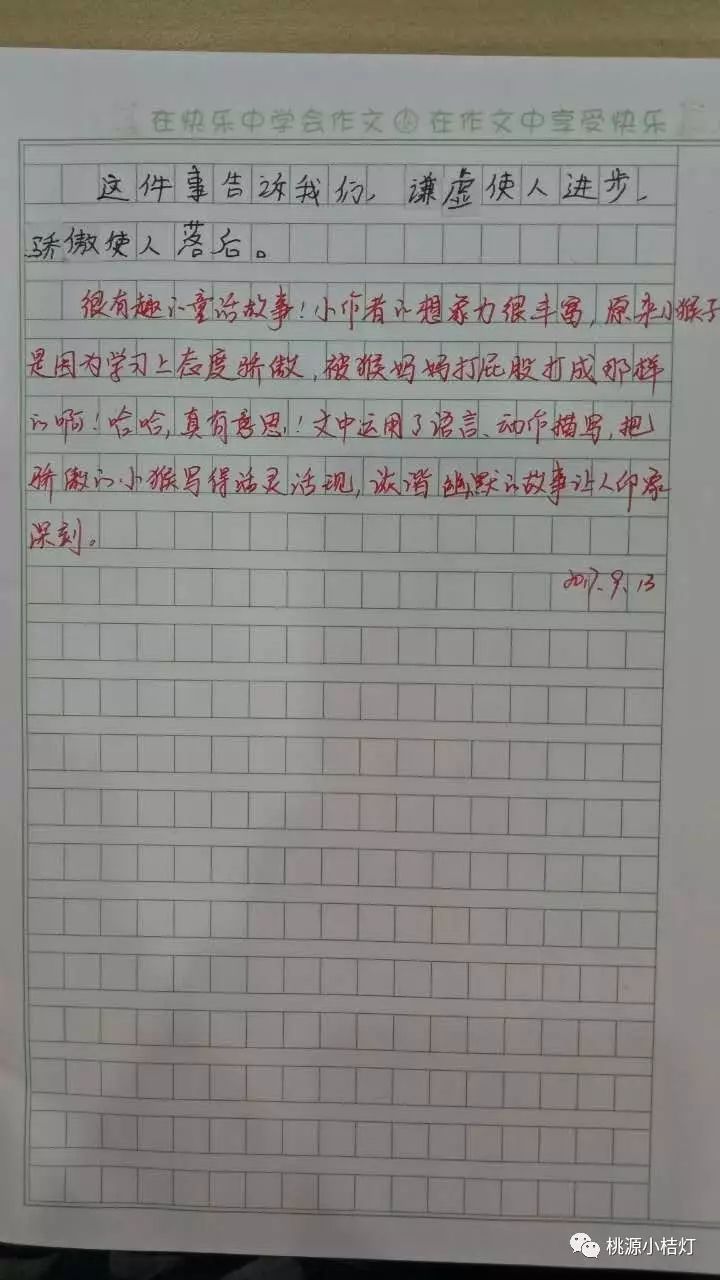 在快乐中学会作文 在作文中享受快乐
这件事告诉我们，谦虚使人进步，
骄傲使人落后。
很有趣的童话故事！小作者的想象力很丰富，原来小猴子
是因为学习上态度骄傲，被猴妈妈打屁股打成那样
的啊！哈哈，真有意思！文中运用了语言、动作描写，把
骄傲的小猴写得活灵活现，诙谐幽默的故事让人印象
深刻。
2017.9.13
桃源小桔灯